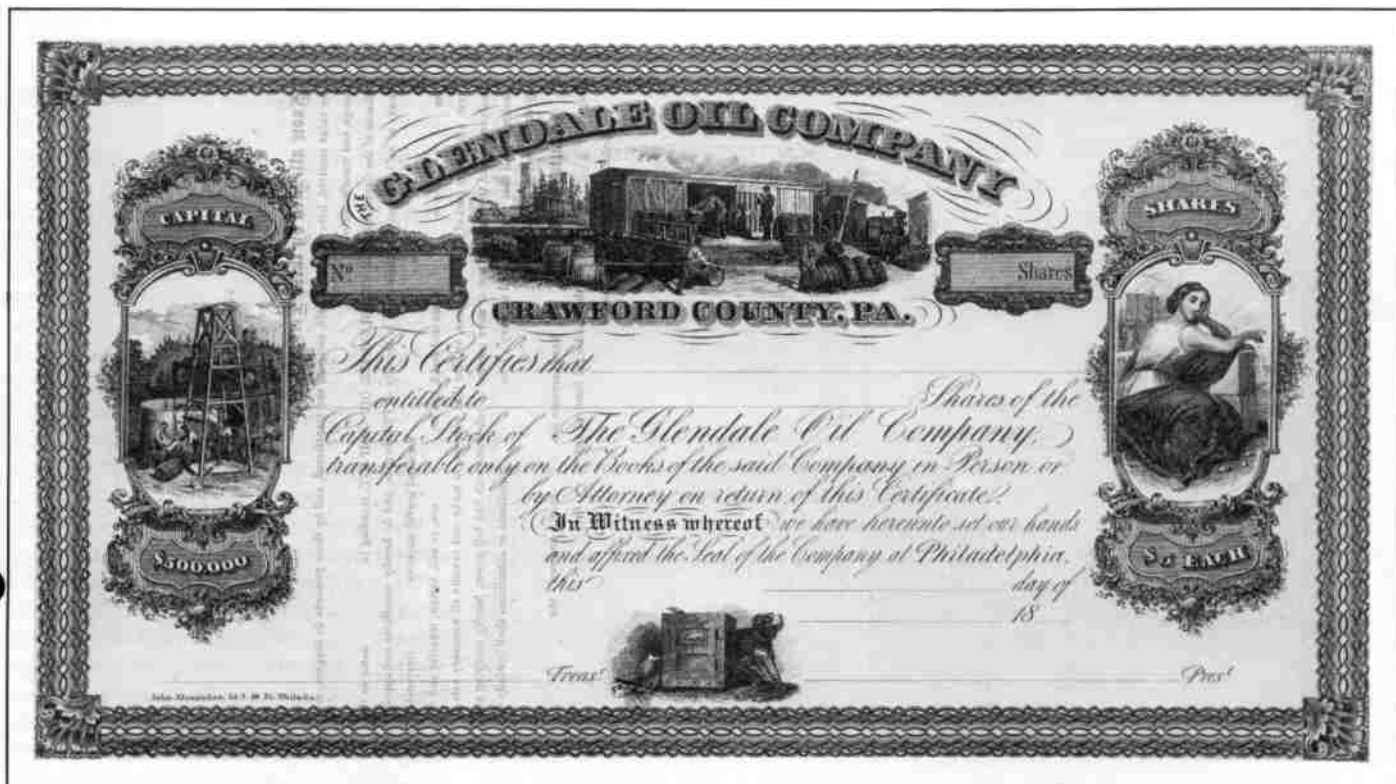 THE GLENDALE OIL COMPANY
CAPITAL
SHARES
No
Shares
CRAWFORD COUNTY, PA.
This Certifies that
entitled to Shares of the
Capital Stock of The Glendale Oil Company,
transferable only on the Books of the said Company in Person or
by Attorney on return of this Certificate.
In Witness whereof we have hereunto set our hands
and affixed the Seal of the Company at Philadelphia,
this day of
18
$500.000
EACH
Treast
Prest
John